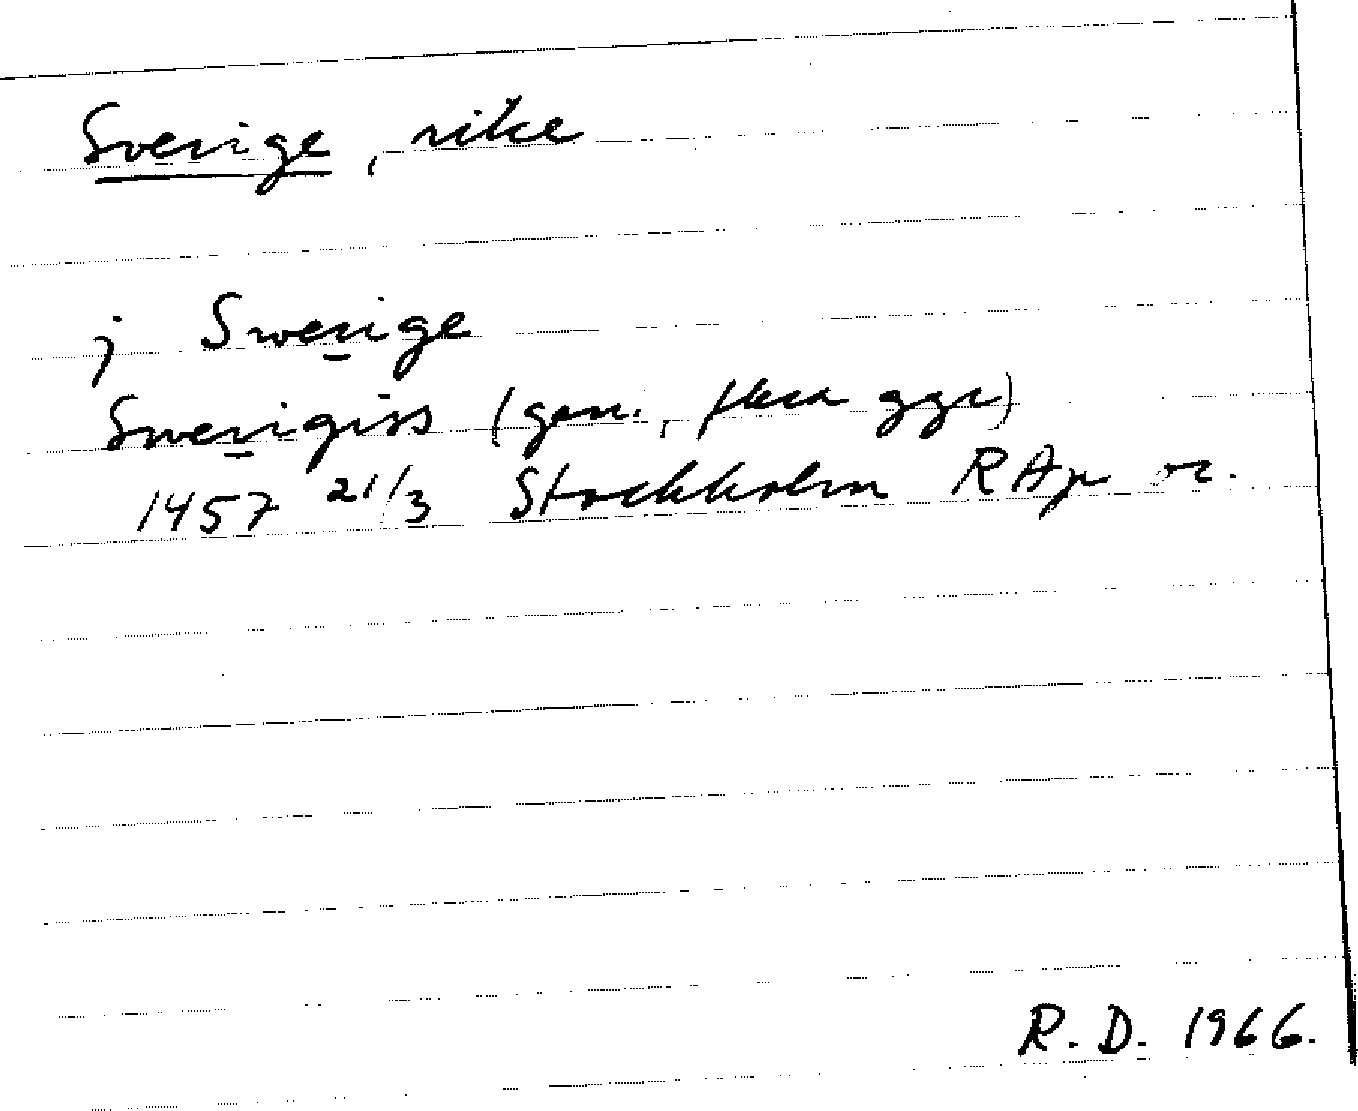 Sverige, rike
j Swerige
Swerigiss (gen., flera ggr)
1457 21/3 Stockholm RAp or.
R. D. 1966.